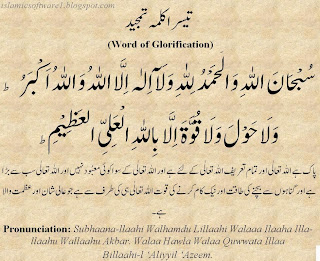 islamicsoftware1.blogspot.com
تیسرا کلمہ تمجید
(Word of Glorification)
سُبْحَانَ اللهِ وَالْحَمْدُ لِلّٰهِ وَلَآ اِلٰهَ اِلَّا اللهُ وَاللهُ اَكْبَرُ ؕ
وَلَا حَوْلَ وَلَا قُوَّةَ اِلَّا بِاللهِ الْعَلِيِّ الْعَظِيْمِ ؕ
پاک ہے اللہ تعالی اور تمام تعریف اللہ تعالی کے لئے ہے اور اللہ تعالی کے سوا کوئی معبود نہیں اور اللہ تعالی سب سے بڑا
ہے اور گناہوں سے بچنے کی طاقت اور نیک کام کرنے کی قوت اللہ تعالی ہی کی طرف سے ہے جو عالی شان اور عظمت والا
ہے۔
Pronunciation: Subhaana-llaahi Walhamdu Lillaahi Walaaa Ilaaha Illa-
llaahu Wallaahu Akbar. Walaa Hawla Walaa Quwwata Illaa
Billaahi-l 'Aliyyil 'Azeem.